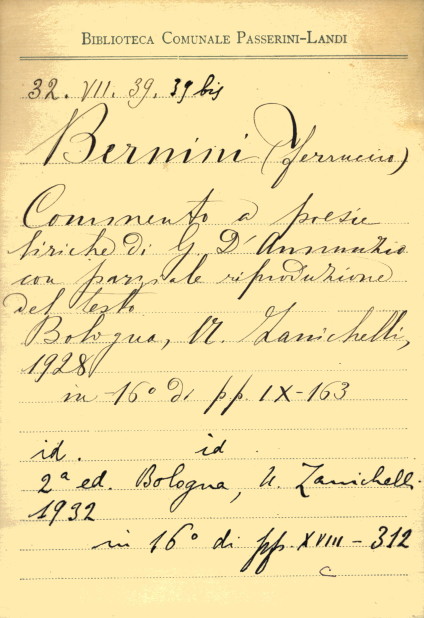 BIBLIOTECA COMUNALE PASSERINI-LANDI
32. VII. 39. 39 bis
Bernini (Ferruccio)
Commento a poesie
liriche di G. D'Annunzio
con parziale riproduzione
del testo
Bologna, N. Zanichelli,
1928
in 16° di pp. IX-163
id. id.
2ª ed. Bologna, N. Zanichelli.
1932
in 16° di pp. XVIII - 312
c